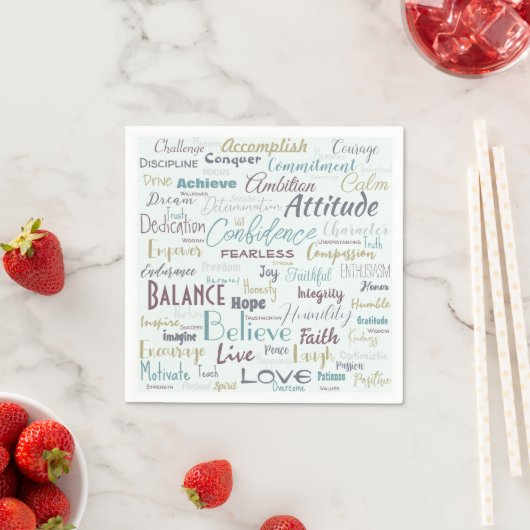 Challenge Accomplish Courage
DISCIPLINE Conquer Commitment
FOCUS
Drive Achieve Ambition Calm
WILLPOWER
Dream Determination Attitude
Trust
Dedication Will Confidence Character
WORTHY UNDERSTANDING Truth
Empower FEARLESS Compassion
STRONG
Endurance Freedom Joy Faithful ENTHUSIASM
Harmony
BALANCE Honesty Integrity Honor
Hope Humble
Nurture TRUSTWORTHY Humility
Inspire SUCCEED Believe Gratitude
Imagine Faith WISDOM
Kindness
Encourage Live Peace Laugh Optimistic
Happiness Passion
Motivate Teach LOVE Patience Positive
STRENGTH Present Spirit Overcome VALUES